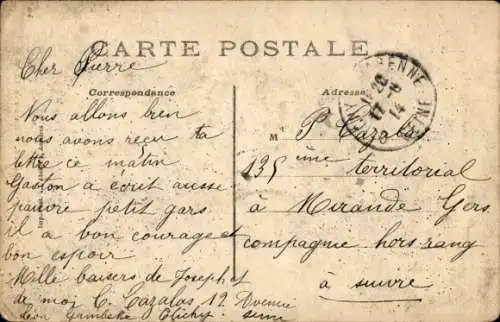 CARTE POSTALE
Correspondance
Adresse
Cher Pierre
Nous allons bien
nous avons reçu ta
lettre ce matin
Gaston a écrit ausse
pauvre petit gars
il a bon courage et
bon espoir
Mille baisers de Joseph et
de moi C. Cazalas 12 Avenue
Léon Gambetta Clichy Seine
GARENNE
17 - 8
14
SEINE
Mr P. Cazalas
135 ème territorial
à Mirande Gers
compagnie hors rang
à suivre